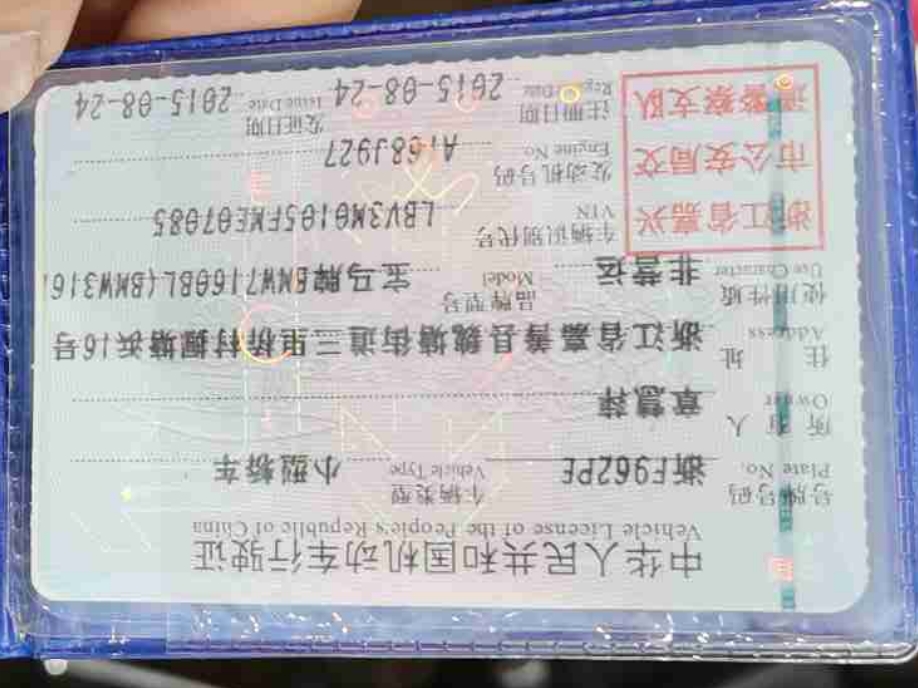 中华人民共和国机动车行驶证
Vehicle License of the People's Republic of China
号牌号码 浙F962PE 车辆类型 小型轿车
Plate No. Vehicle Type
所有人 章慧萍
Owner
住址 浙江省嘉善县魏塘街道三里桥村握塘浜16号
Address
使用性质 非营运 品牌型号 宝马牌BMW7160BL(BMW316
Use Character Model
浙江省嘉兴 车辆识别代号 LBV3M0105FME07085
VIN
市公安局交 发动机号码 A168J927
Engine No.
通警察支队 注册日期 2015-08-24 发证日期 2015-08-24
Register Date Issue Date